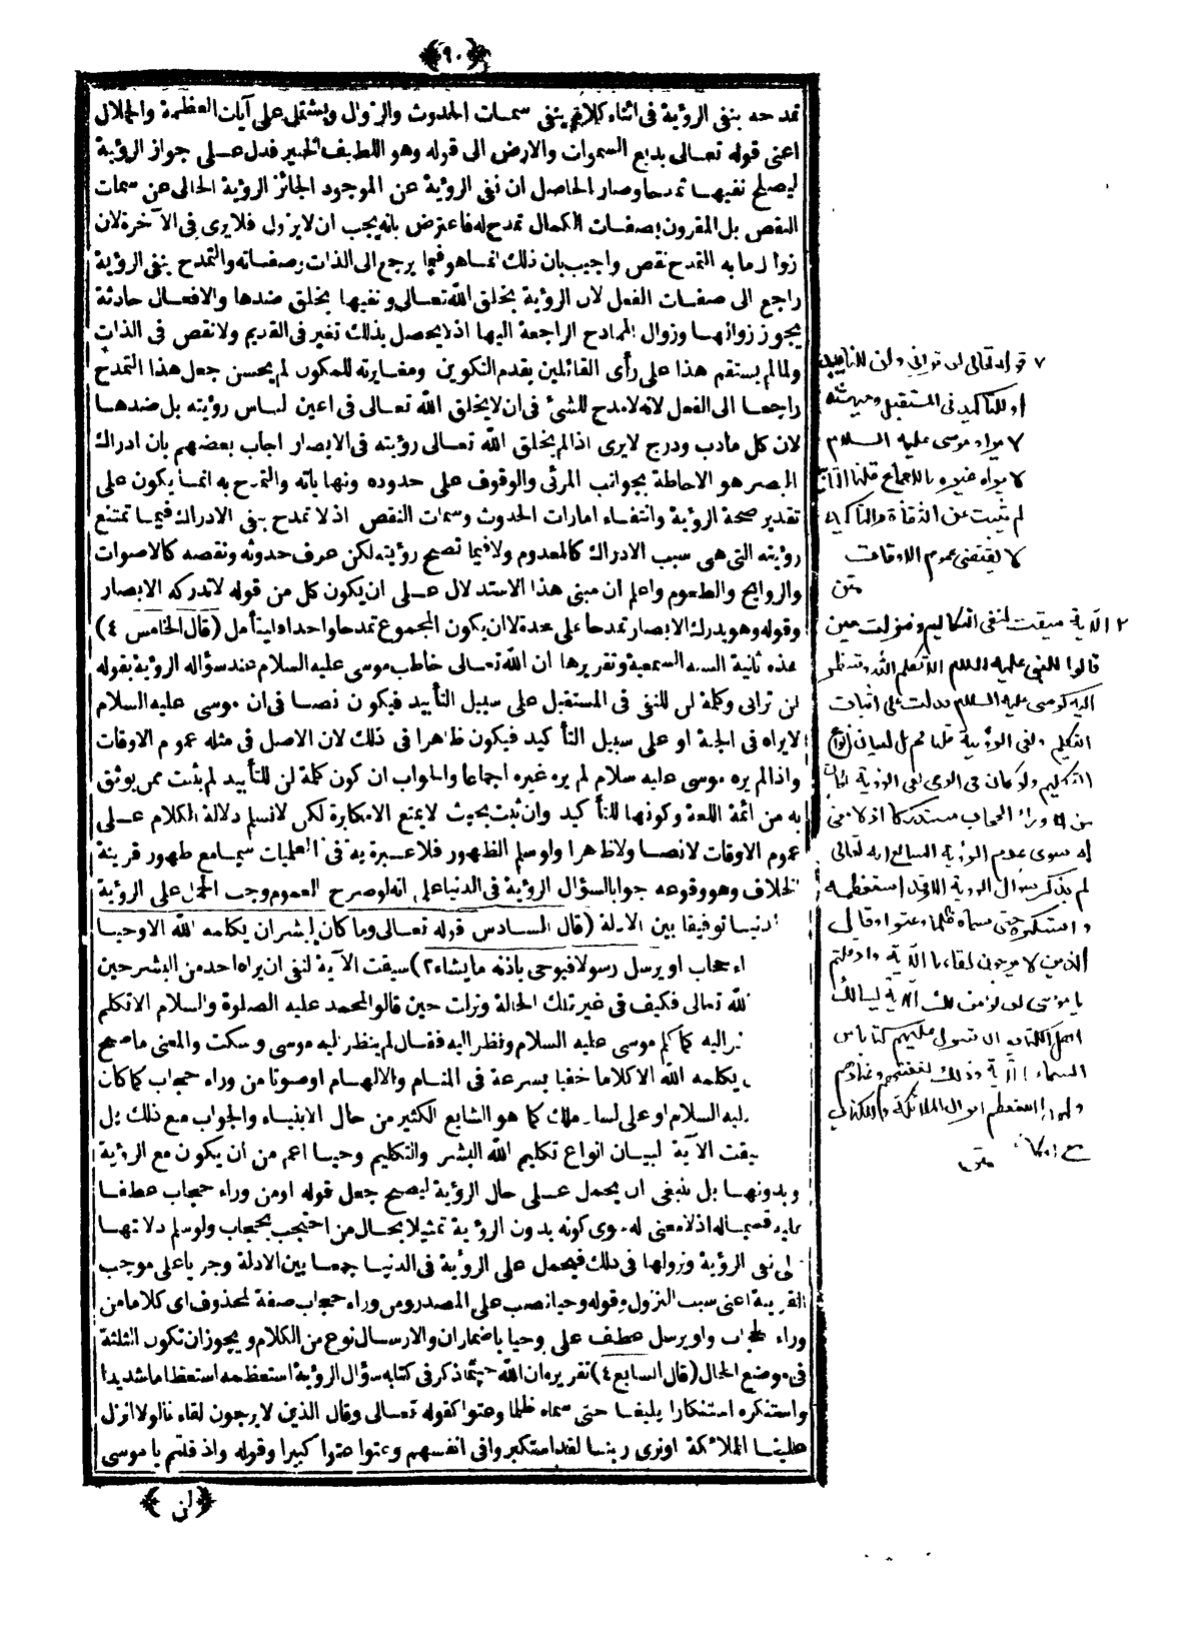 ﴿٩٠﴾
تمدحه بنفى الرؤية فى اثناء كلام ينفى سمات الحدوث والزوال ويشتمل على آيات العظمة والجلال
اعنى قوله تعالى بديع السموات والارض الى قوله وهو اللطيف الخبير فدل على جواز الرؤية
ليصلح نفيها تمدحا وصار الحاصل ان نفى الرؤية عن الموجود الجائز الرؤية الخالى عن سمات
النقص بل المقرون بصفات الكمال تمدح له فاعترض بانه يجب ان لا يزول فلا يرى فى الآخرة لان
زوال ما به التمدح نقص واجيب بان ذلك انما هو فيما يرجع الى الذات وصفاته والتمدح بنفى الرؤية
راجع الى صفات الفعل لان الرؤية بخلق الله تعالى ونفيها بخلق ضدها والافعال حادثة
يجوز زوالها وزوال الممادح الراجعة اليها اذ لا يحصل بذلك تغير فى القديم ولا نقص فى الذات
ولما لم يستقم هذا على رأى القائلين بقدم التكوين ومغايرته للمكون لم يحسن جعل هذا التمدح
راجعا الى الفعل لانه لا مدح للشئ فى ان لا يخلق الله تعالى فى اعين الناس رؤيته بل ضدها
لان كل مادب ودرج لا يرى اذا لم يخلق الله تعالى رؤيته فى الابصار اجاب بعضهم بان ادراك
البصر هو الاحاطة بجوانب المرئى والوقوف على حدوده ونهاياته والتمدح به انما يكون على
تقدير صحة الرؤية وانتفاء امارات الحدوث وسمات النقص اذ لا تمدح بنفى الادراك فيما تمتنع
رؤيته التى هى سبب الادراك كالمعدوم ولا فيما تصح رؤيته لكن عرف حدوثه ونقصه كالاصوات
والروايح والطعوم واعلم ان مبنى هذا الاستدلال على ان يكون كل من قوله لاتدركه الابصار
وقوله وهو يدرك الابصار تمدحا على حدة لا ان يكون المجموع تمدحا واحدا فليتأمل (قال الخامس ٤)
هذه ثانية الشبه السمعية وتقريرها ان الله تعالى خاطب موسى عليه السلام عند سؤاله الرؤية بقوله
لن ترانى وكلمة لن للنفى فى المستقبل على سبيل التأبيد فيكون نصا فى ان موسى عليه السلام
لا يراه فى الجنة او على سبيل التأكيد فيكون ظاهرا فى ذلك لان الاصل فى مثله عموم الاوقات
واذا لم يره موسى عليه سلام لم يره غيره اجماعا والجواب ان كون كلمة لن للتأبيد لم يثبت ممن يوثق
به من ائمة اللغة وكونها للتأكيد وان ثبت بحيث لا يمنع الا مكابرة لكن لا نسلم دلالة الكلام على
عموم الاوقات لا نصا ولا ظاهرا ولو سلم الظهور فلا عبرة به فى العلميات سيما مع ظهور قرينة
الخلاف وهو وقوعه جوابا لسؤال الرؤية فى الدنيا على انه لو صرح بالعموم وجب الحمل على الرؤية
الدنيا توفيقا بين الادلة (قال السادس قوله تعالى وما كان لبشر ان يكلمه الله الا وحيا
او من وراء حجاب او يرسل رسولا فيوحى باذنه ما يشاء ٢) سيقت الآية لنفى ان يراه احد من البشر حين
الله تعالى فكيف فى غير تلك الحالة ونزلت حين قالوا لمحمد عليه الصلوة والسلام الا تكلم
تنظر اليه كما كلم موسى عليه السلام ونظر اليه فقال لم ينظر اليه موسى وسكت والمعنى ما صح
يكلمه الله الا كلاما خفيا بسرعة فى المنام والالهام او صوتا من وراء حجاب كما كان
عليه السلام او على لسان ملك كما هو الشايع الكثير من حال الانبياء والجواب منع ذلك بل
سيقت الآية لبيان انواع تكليم الله البشر والتكليم وحيا اعم من ان يكون مع الرؤية
وبدونها بل ينبغى ان يحمل على حال الرؤية ليصح جعل قوله او من وراء حجاب عطفا
عليه قسيما له اذ لا معنى له سوى كونه بدون الرؤية تمثيلا بحال من احتجب بحجاب ولو سلم دلالتها
على نفى الرؤية ونزولها فى ذلك فيحمل على الرؤية فى الدنيا جمعا بين الادلة وجريا على موجب
القرينة اعنى سبب النزول وقوله وحيا نصب على المصدر ومن وراء حجاب صفة لمحذوف اى كلاما من
وراء حجاب واو يرسل عطف على وحيا باضمار ان والارسال نوع من الكلام ويجوز ان تكون الثلثة
فى موضع الحال (قال السابع ٤) تقريره ان الله حيثما ذكر فى كتابه سؤال الرؤية استعظمه استعظاما شديدا
واستنكره استنكارا بليغا حتى سماه ظلما وعتوا كقوله تعالى وقال الذين لا يرجون لقاءنا لولا انزل
علينا الملائكة او نرى ربنا لقد استكبروا فى انفسهم وعتوا عتوا كبيرا وقوله واذ قلتم يا موسى
﴿لن﴾
٧ قوله تعالى لن ترانى ولن للتأبيد
او للتأكيد فى المستقبل وحيث
لا يراه موسى عليه السلام
لا يراه غيره بالاجماع قلنا التأبيد
لم يثبت عن الثقاة والتأكيد
لا يقتضى عموم الاوقات
متن
٢ الآية سيقت لنفى التكليم ونزلت حين
قالوا للنبى عليه السلام الا تكلم الله وتنظر
اليه كموسى عليه السلام فدلت على اثبات
التكليم ونفى الرؤية قلنا بل لبيان انواع
التكليم ولو كان فى الوحى نفى الرؤية لكان
من وراء الحجاب مستدركا اذ لا معنى
له سوى عدم الرؤية السابع انه تعالى
لم يذكر سؤال الرؤية الا وقد استعظمه
واستنكره حتى سماه ظلما وعتوا وقال
الذين لا يرجون لقاءنا الآية واذ قلتم
يا موسى لن نؤمن لك الآية يسألك
اهل الكتاب ان تنزل عليهم كتابا من
السماء الآية وذلك لتعنتهم وعنادهم
ولهذا استعظم انزال الملائكة والكتاب
مع امكانه
متن